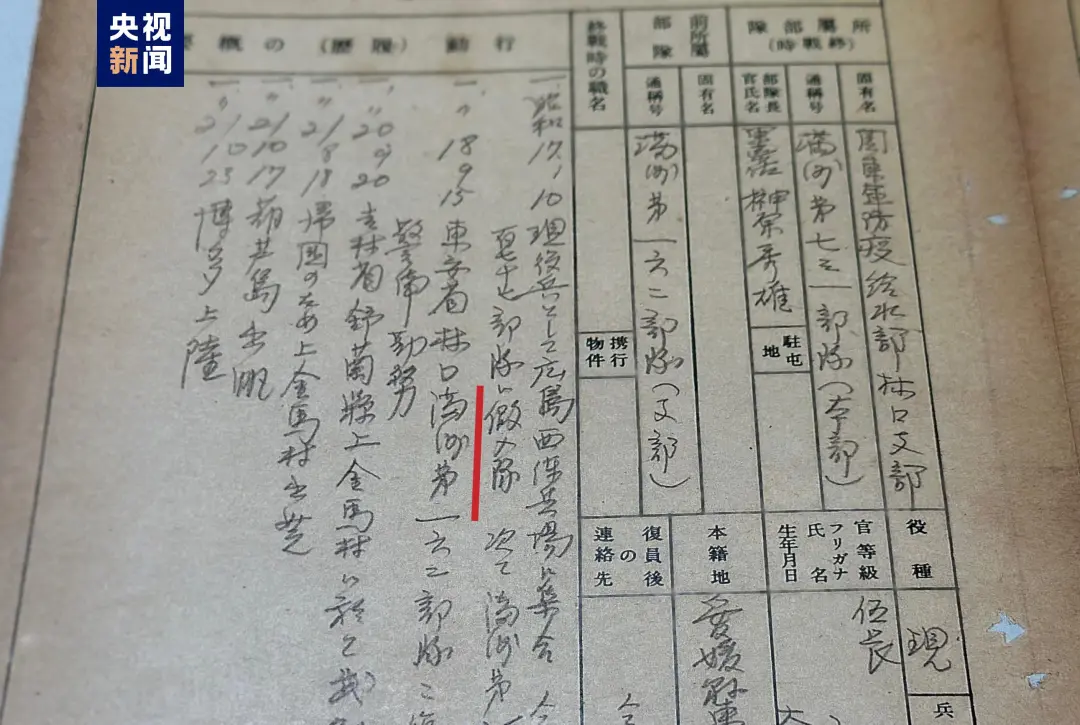 央视
新闻
所屬部隊
(終戰時)
固有名
関東軍防疫給水部林口支部
通稱号
満洲第七三一部隊(本部)
部隊長
官氏名
榊原秀雄
駐屯
地
前所屬
部隊
固有名
通稱号
満洲第一六二部隊(支部)
終戰時の職名
携行
物件
役種
現
兵
官等級
伍長
フリガナ
氏名
生年月日
本籍地
愛媛縣
復員後
の
連絡先
行動(履歷)の概
一、昭和17、10 現役兵として広島西練兵場に集合
部隊に仮入隊 次で満洲第
一、〃 18 9 15 東安省林口満洲第一六二部隊に
警備勤務
一、〃 20 9 20 吉林省舒蘭縣上金馬村に於て
一、〃 21 8 18 帰国のため上金馬村出発
一、〃 21 10 17 葫芦島出帆
一、〃 21 10 23 博多上陸